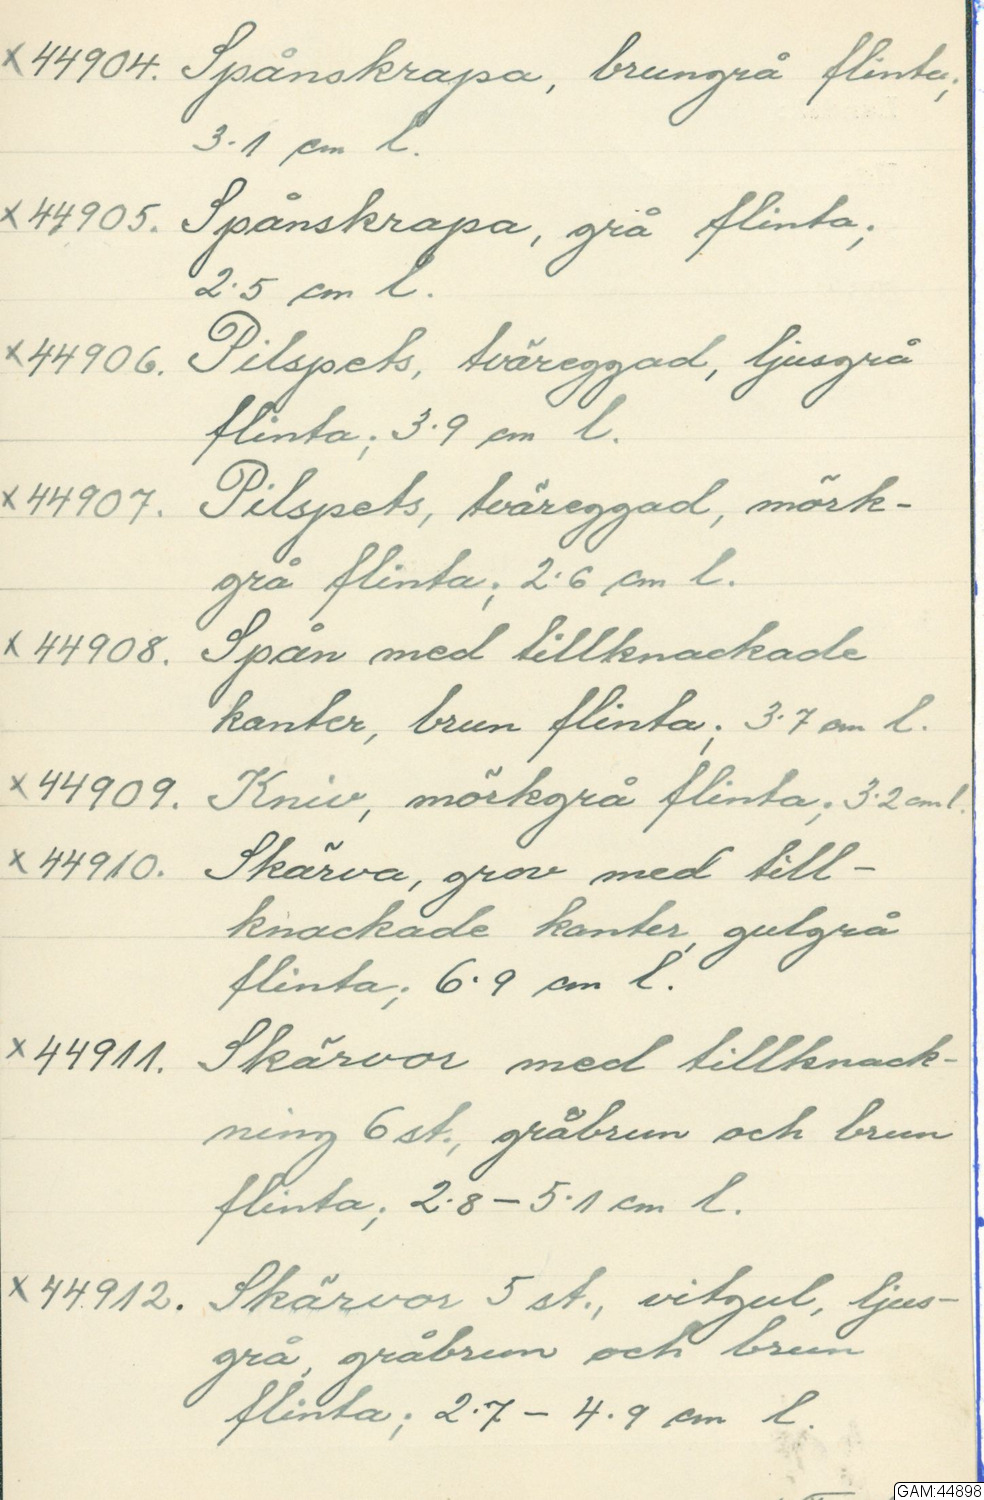 x 44904. Spånskrapa, brungrå flinta;
3.1 cm l.
x 44905. Spånskrapa, grå flinta;
2.5 cm l.
x 44906. Pilspets, tväreggad, ljusgrå
flinta; 3.9 cm l.
x 44907. Pilspets, tväreggad, mörk-
grå flinta; 2.6 cm l.
x 44908. Spån med tillknackade
kanter, brun flinta; 3.7 cm l.
x 44909. Kniv, mörkgrå flinta; 3.2 cm l.
x 44910. Skärva, grov med till-
knackade kanter, gulgrå
flinta; 6.9 cm l.
x 44911. Skärvor med tillknack-
ning 6 st., gråbrun och brun
flinta; 2.8 – 5.1 cm l.
x 44912. Skärvor 5 st., vitgul, ljus-
grå, gråbrun och brun
flinta; 2.7 – 4.9 cm l.
GAM:44898